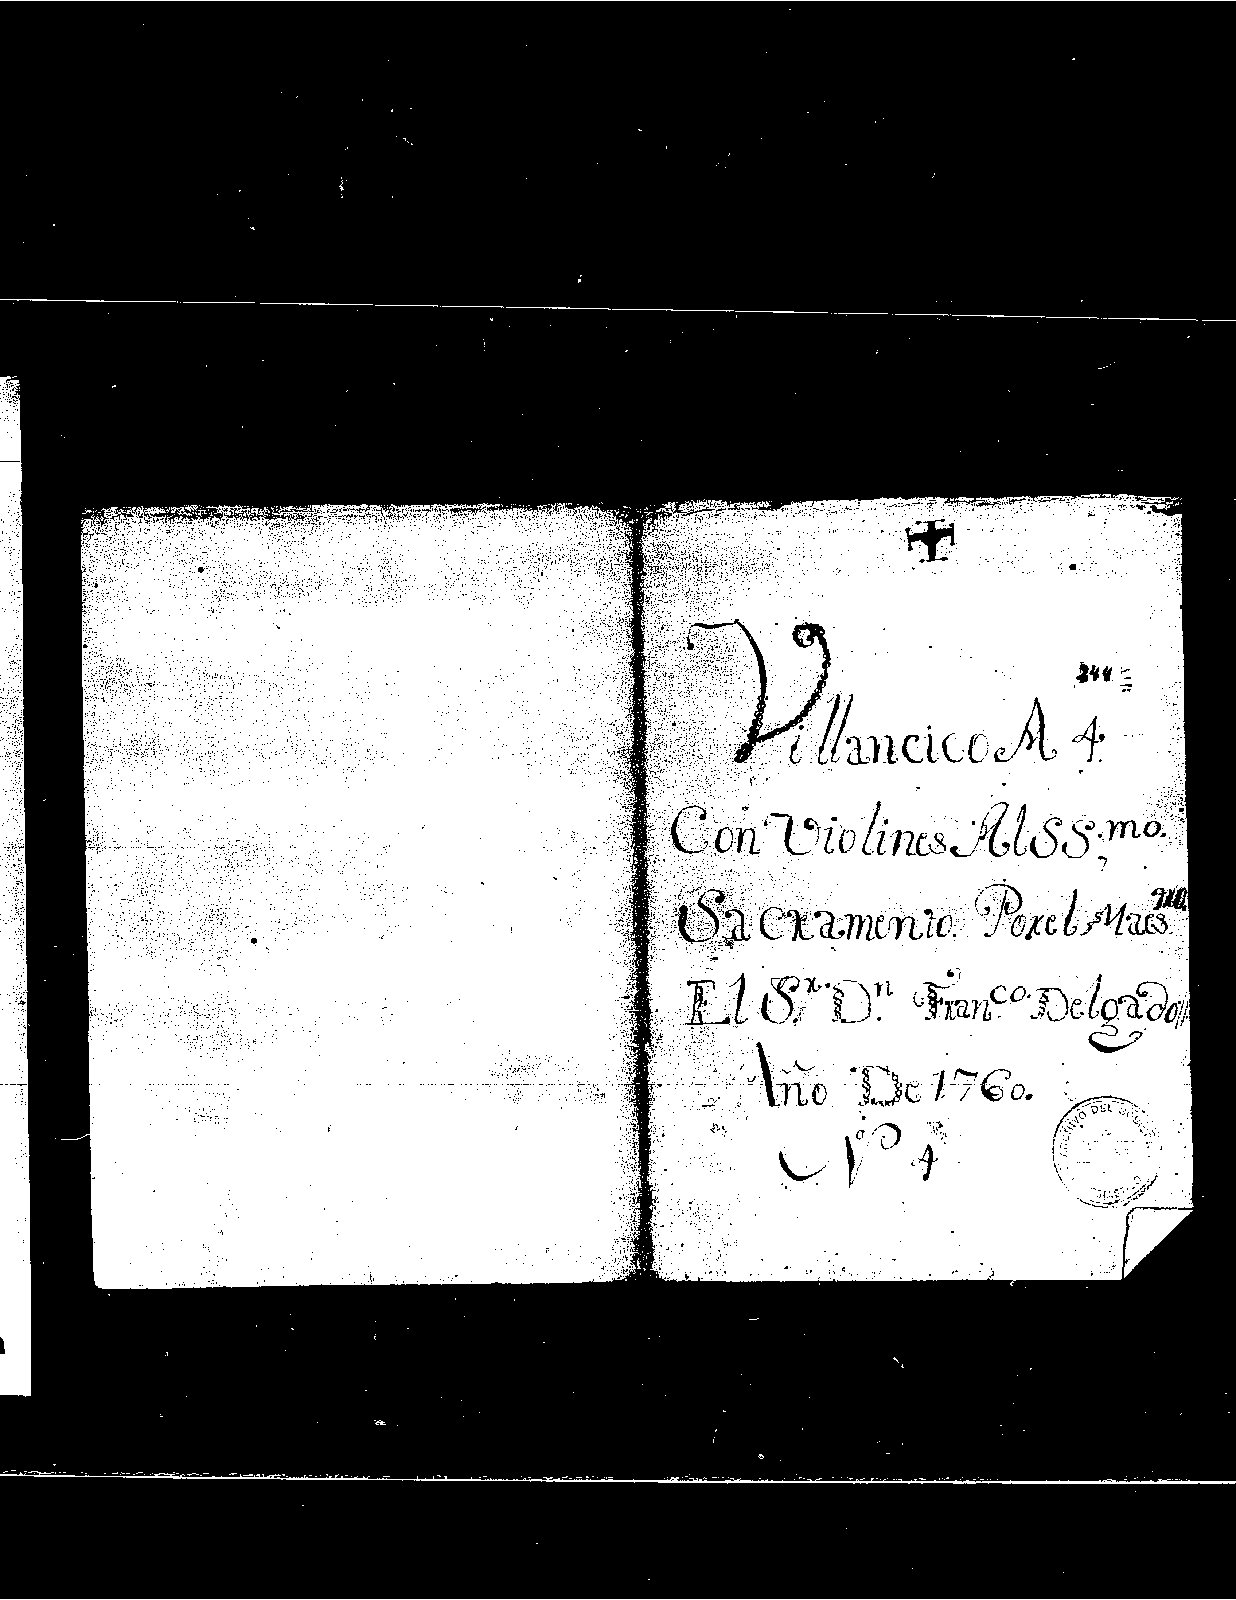 244
Villancico A 4.
Con Violines Al SS.mo.
Sacramento. Por el Maes.tro
El S.r D.n Fran.co Delgado
Año De 1760.
Nº 4
ARCHIVO DEL